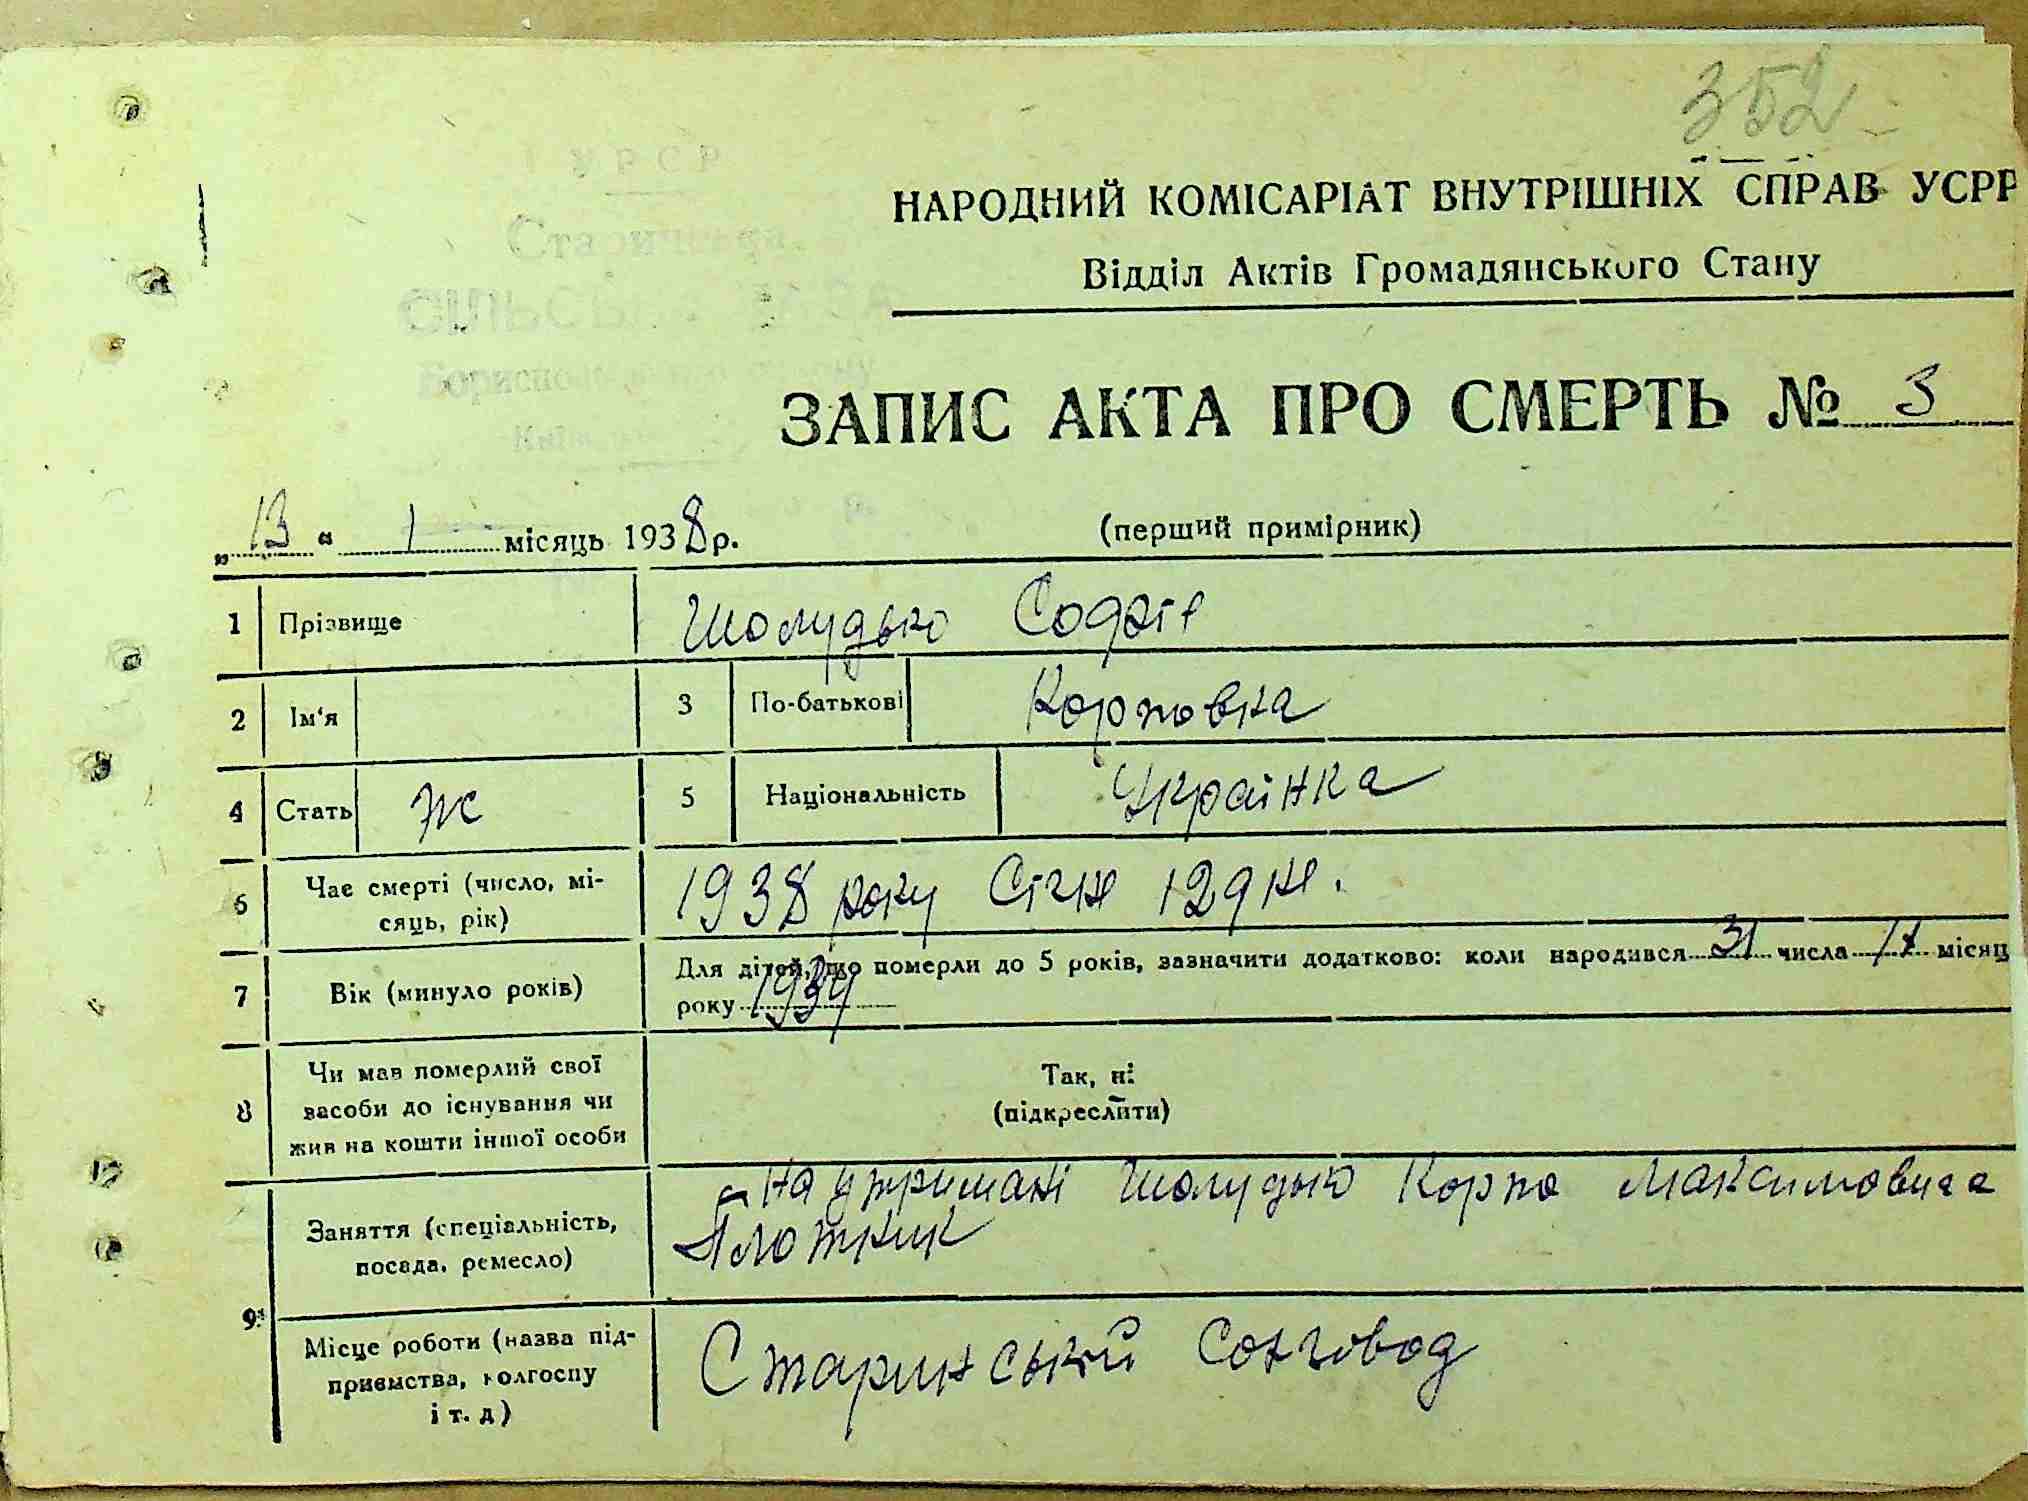 352
НАРОДНИЙ КОМІСАРІАТ ВНУТРІШНІХ СПРАВ УСРР
Відділ Актів Громадянського Стану
ЗАПИС АКТА ПРО СМЕРТЬ № 3
„13" 1 місяць 1938 р.
(перший примірник)
1 Прізвище Шолудько Софіе
2 Ім'я
3 По-батькові Корповна
4 Стать ж
5 Національність Українка
6 Час смерті (число, мі-
сяць, рік)
1938 року Січне 12 дне.
7 Вік (минуло років)
Для дітей, що померли до 5 років, зазначити додатково: коли народився 31 числа місяц
року 1937
8 Чи мав померлий свої
засоби до існування чи
жив на кошти іншої особи
Так, ні
(підкреслити)
9 Заняття (спеціальність,
посада, ремесло)
На утримані Шолудько Корпо Максимовича
Плотник
Місце роботи (назва під-
приємства, колгоспу
і т. д)
Старинський